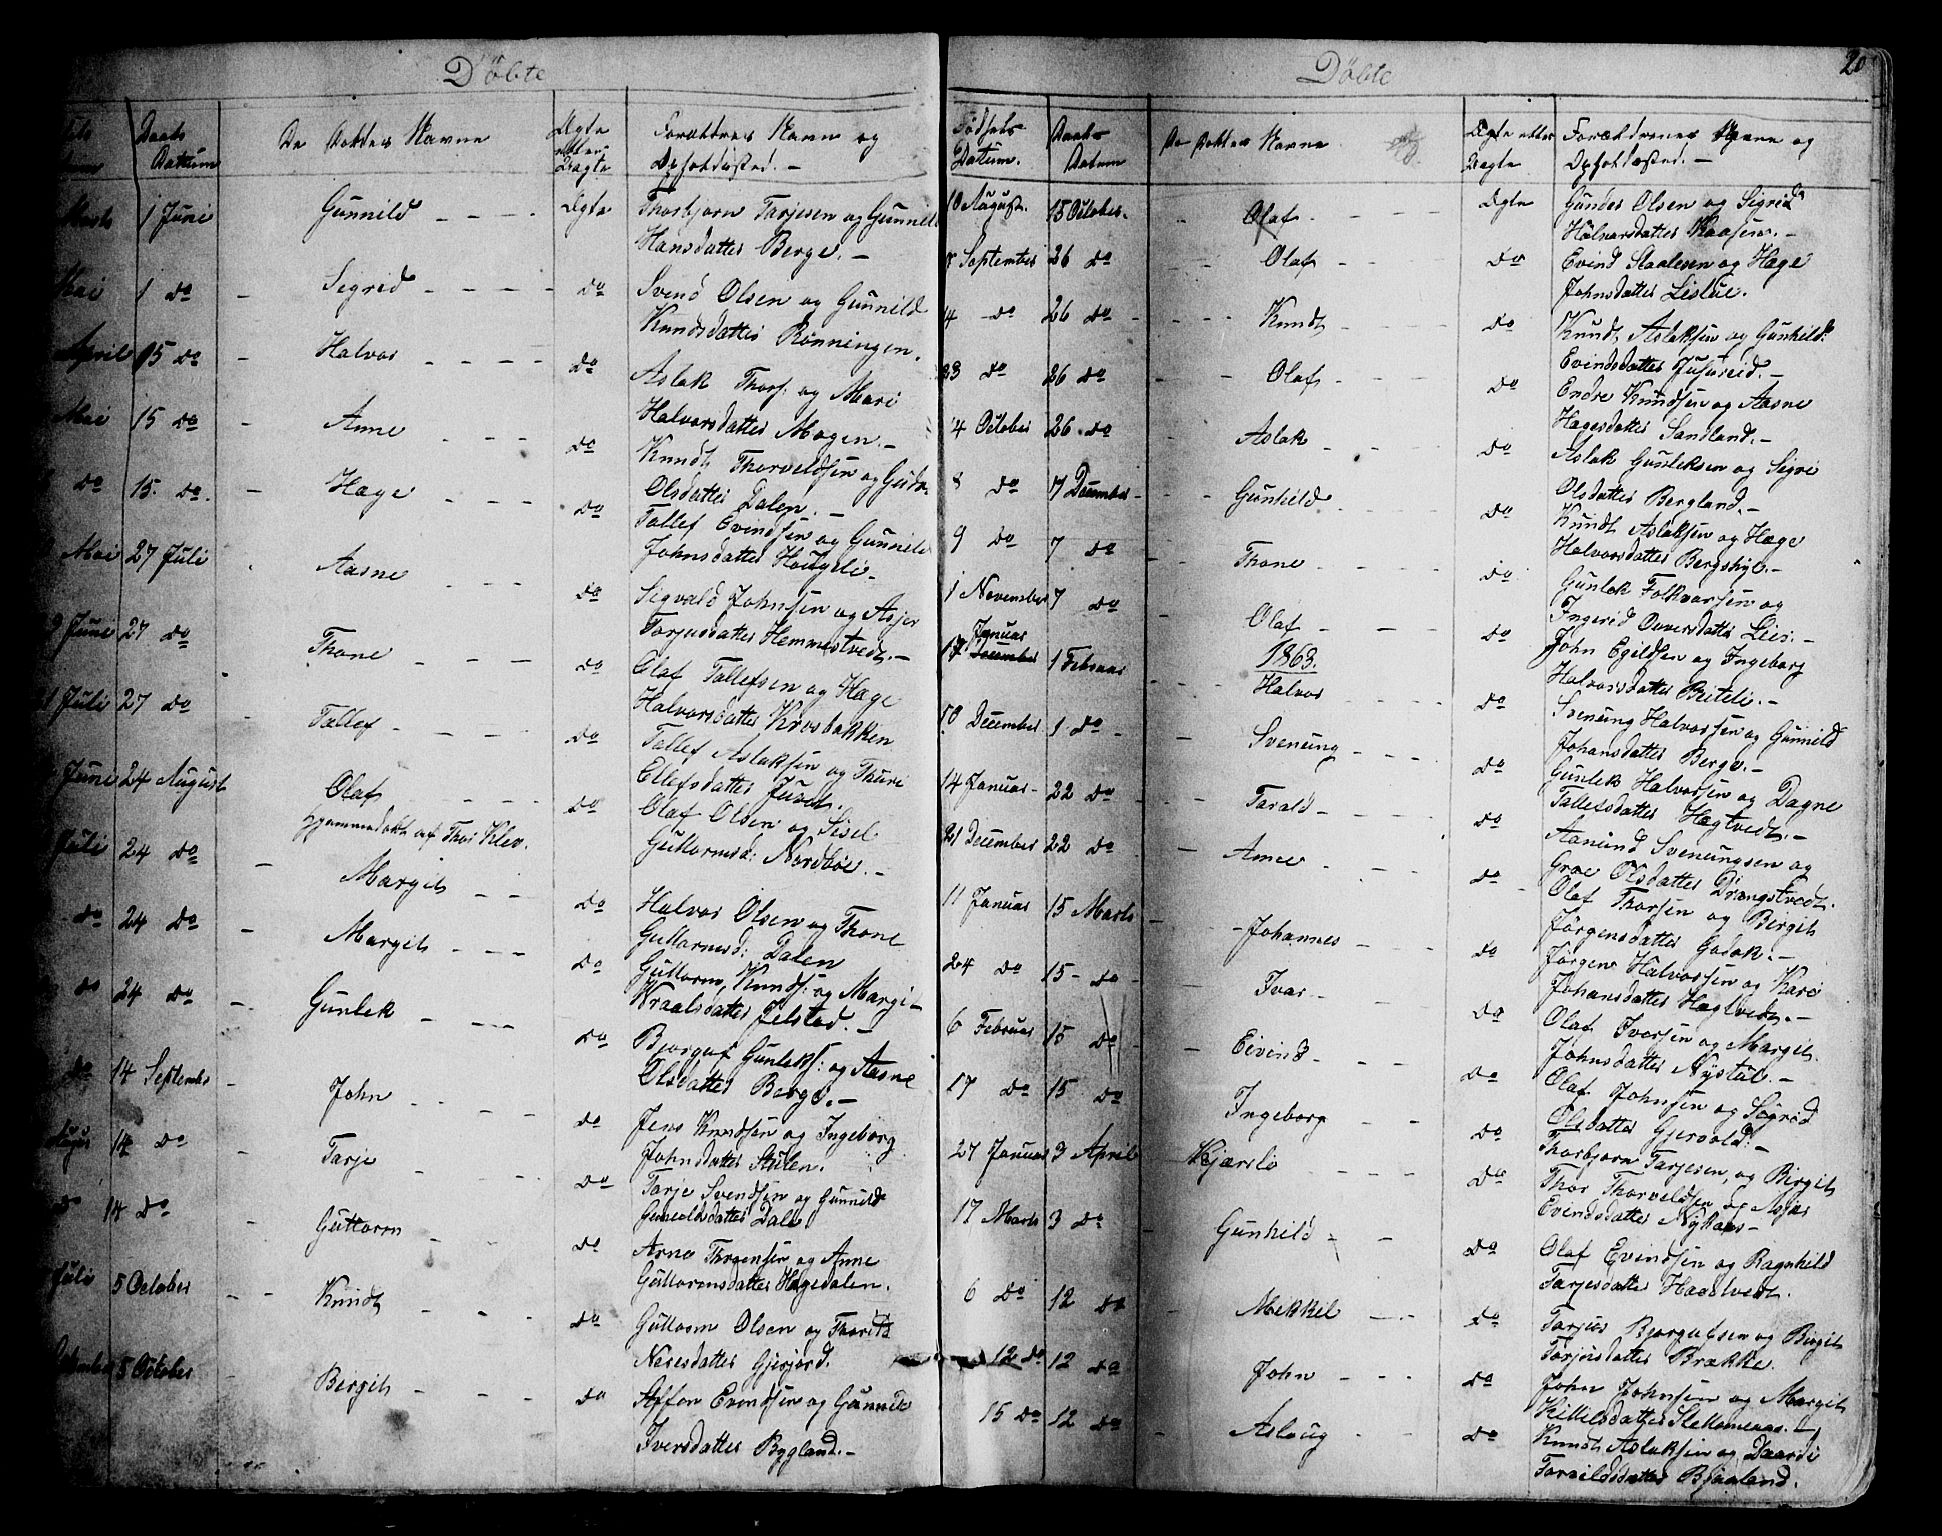 Döbte
Daabs Datum
De Döbtes Navne
Ægte eller Uægte
Forældres Navn og Opholdssted. —
Marts 1 Juni Gunnild Ægte Thorbjørn Tarjesen og Gunnild
Hansdatter Berge. —
Mai 1 do Sigrid do Svend Olsen og Gunnild
Knudsdatter Rønningen.
April 15 do Halvor do Aslak Thors. og Mari
Halvorsdatter Mogen. —
Mai 15 do Anne do Knudt Thorveldsen og
Olsdatter Dalen. —
do 15 do Hæge do Tallef Evindsen og Gunnild
Johnsdatter Hougelie
Mai 27 Juli Aasne do Sigvald Johnsen og Asjer
Torjusdatter Hemmestvedt. —
9 June 27 do Thone do Olaf Tallefsen og Hæge
Halvorsdatter Krosbakken
Juli 27 do Tallef do Tallef Aslaksen og Thuri
Ellefsdatter Juvet.
Juni 24 August Olaf do Olaf Olsen og Sisel
hjemmedöbt af Thor Klev.
Guttormsd: Nordbøe. —
Juli 24 do Margit do Halvor Olsen og Thone
Guttormsd: Dalen
do 24 do Margit do Guttorm Knuds: og Margi-
Kraalsdatter Jelstad. —
do 24 do Gunlek do Bjorguf Gunleks: og Aasne
Olsdatter Berge. —
do 14 September John do Jens Knudsen og Ingeborg
Johnsdatter Stulen.
August 14 do Tarje do Tarje Svendsen og Gunnild
Gunvoldsdatter Dale
do 14 do Guttorm do Arne Thorgensen og Anne
Guttormsdatter Hagedalen.
Juli 5 October Knudt do Guttorm Olsen og Thorid
Neresdatter Gjerjord.
5 October Bergit do Steffen Evindsen og Gunnild
Iversdatter Bygland. —
Döbte
20
Fødsels Datum.
Daabs Datum
De Döbtes Navne
Ægte eller Uægte
Forældrenes Navne og Opholdssted. —
10 August. 15 October. Olaf Ægte Gundes Olsen og Sigrid
Halvorsdatter Kaasene. —
8 September 26 do Olaf do Evind Staalesen og Hæge
Johnsdatter Lislue.
4 do 26 do Knudt do Knudt Aslaksen og Gunhild
Evindsdatter Jusureid. —
23 do 26 do Olaf do Endre Knudsen og Aasne
Hægesdatter Sandland. —
4 October 26 do Aslak do Aslak Gunleksen og Sigri
Olsdatter Bergland. —
8 do 7 December Gunhild do Knudt Aslaksen og Hæge
Halvorsdatter Bergshye. —
9 do 7 do Thone do Gunlek Folkvarsen og
Ingerid Ouversdatter Lies. —
1 November 7 do Olaf do John Egildsen og Ingeborg
Halvorsdatter Beitelie. —
1863.
17 Januar December 1 Februar Halvor do Svenung Halvorsen og Gunnild
Johansdatter Berge. —
30 December 1 do Svenung do Gunlek Halvorsen og Dagne
Tallefsdatter Hægtvedt. —
14 Januar 22 do Tarald do Aanund Svenungsen og
Groe Olsdatter Drangstvedt.
21 December 22 do Anne do Olaf Thorsen og Bergit
Jørgensdatter Godak. —
11 Januar 15 Marts Johannes do Jørgen Halvorsen og Kari
Johansdatter Hægtvedt. —
24 do 15 do Ivar do Olaf Ivarsen og Margit
Johnsdatter Nystul. —
6 Februar 15 do Eivind do Olaf Johnsen og Sigrid
Olsdatter Gjervold: —
17 do 15 do Ingeborg do Thorbjorn Tarjesen, og Birgit
27 Januar 3 April Kjersto do Thor Thorveldsen og Asjer
Evindsdatter Nykaas —
17 Marts 3 do Gunhild do Olaf Evindsen og Ragnhild
Tarjesdatter Haatvedt.
6 do 12 do Mekkel do Tarjus Bjorgufsen og Birgit
Torjusdatter Brække.
12 do 12 do John do John Johnsen og Margit
Kittilsdatter Slettemeaas. —
15 do 12 do Aslaug do Knudt Aslaksen og Daardi
Torgildsdatter Bjaaland.